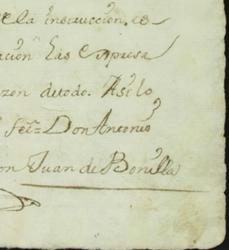 de la instruccion, es
acion las expresa
razon de todo. Asi lo
fet= Don Antonio
on Juan de Bonilla